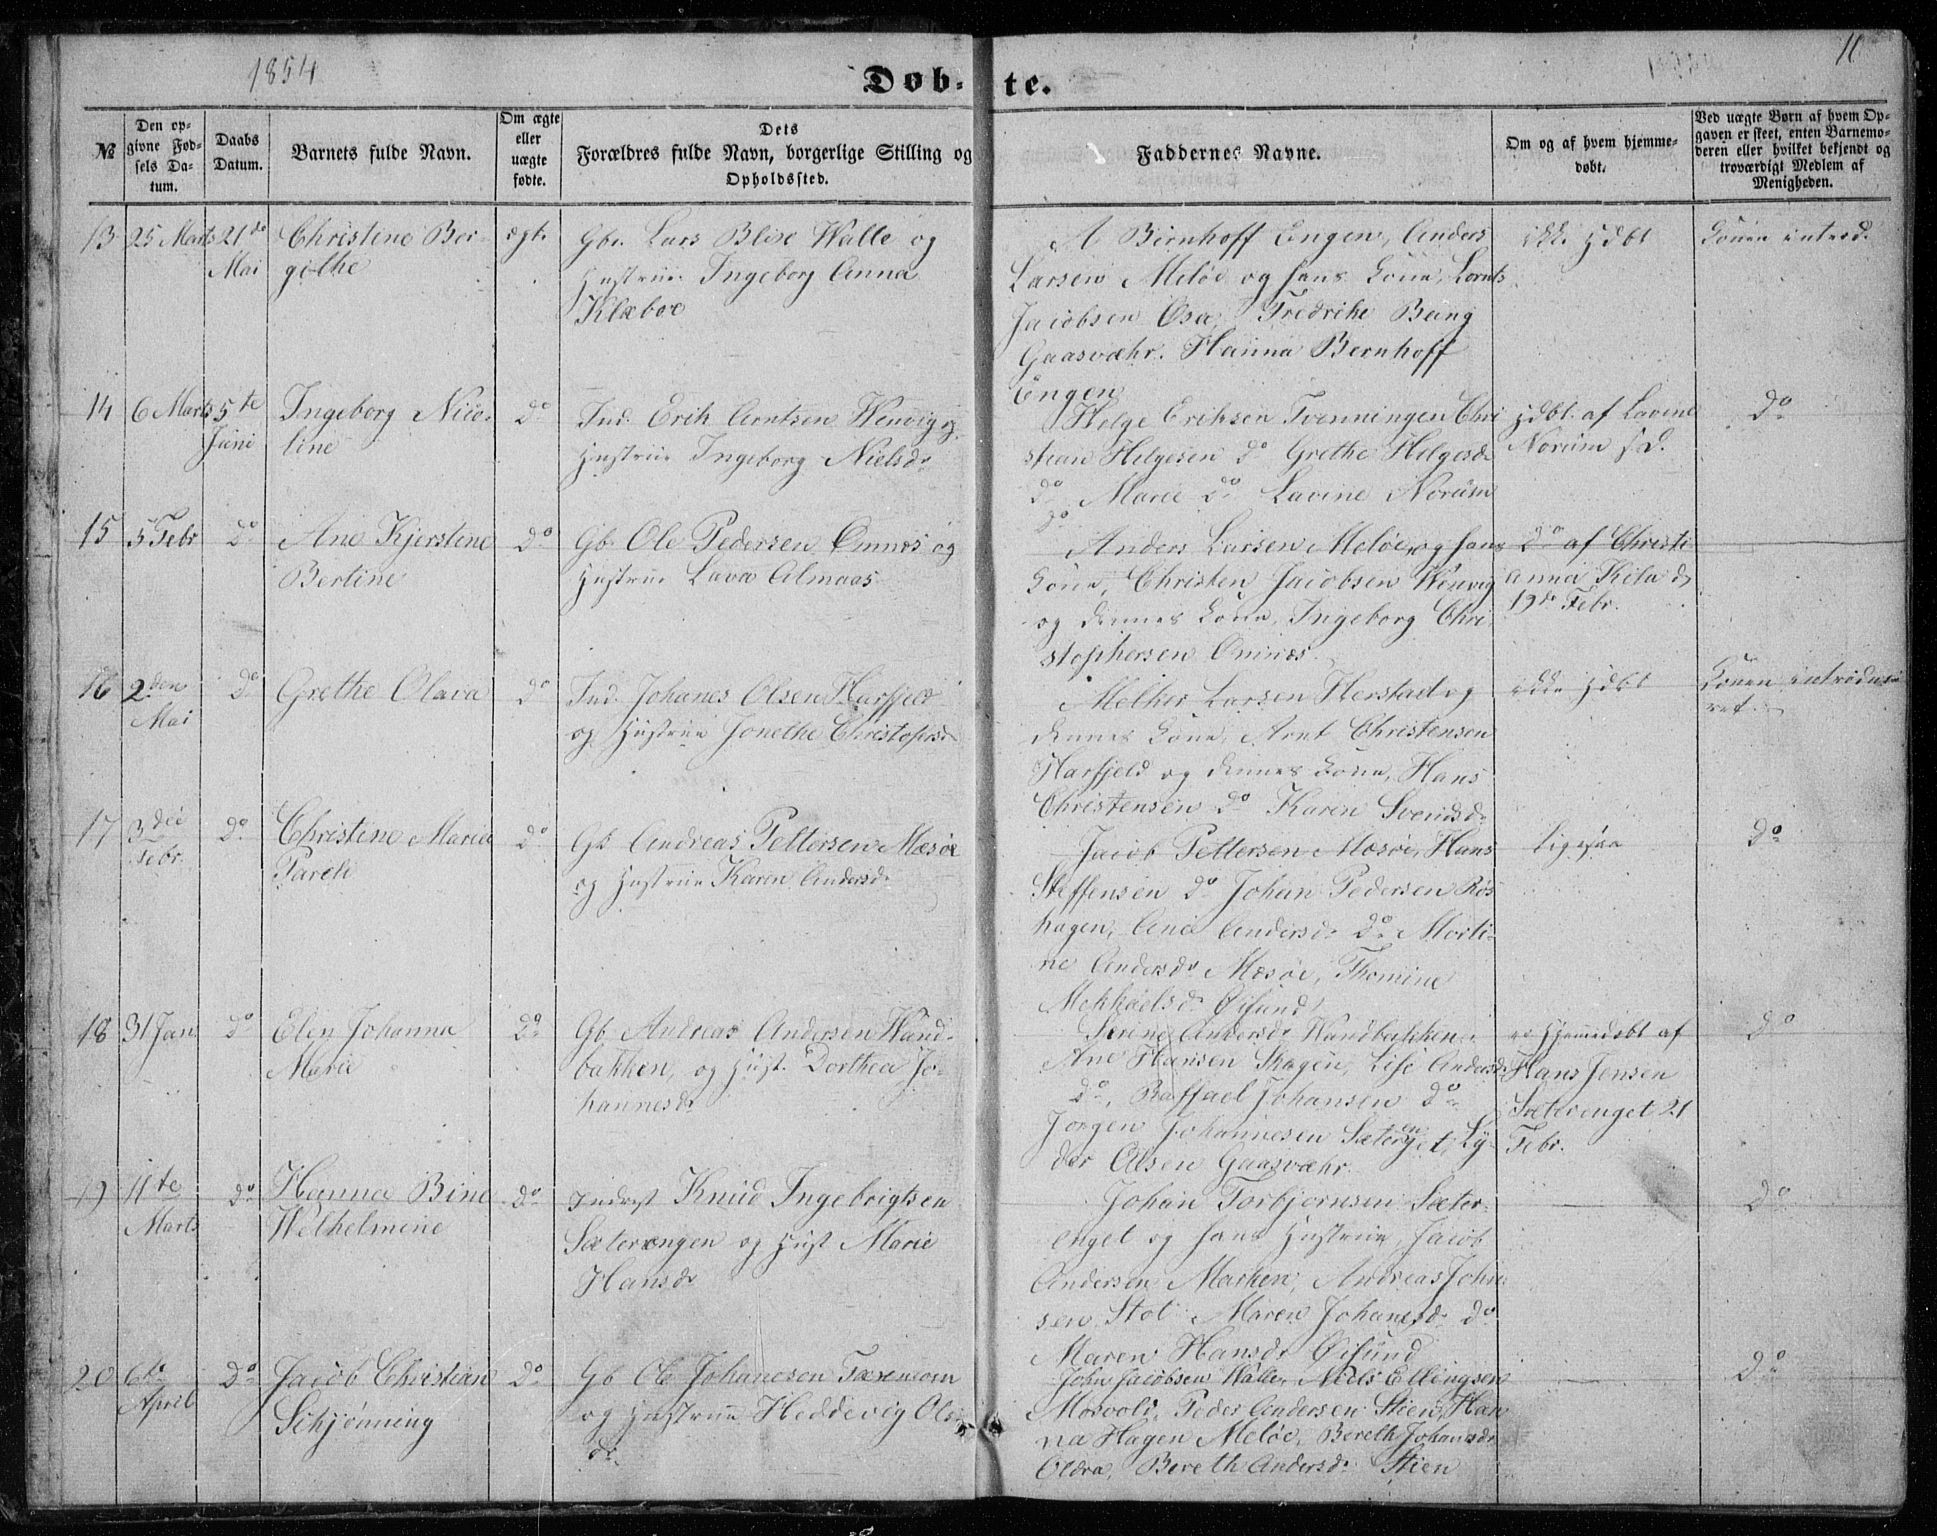 1854
Døb-
te.
10
№
Den op-
givne Fød-
sels Da-
tum.
Daabs
Datum.
Barnets fulde Navn.
Om ægte
eller
uægte
fødte.
Dets
Forældres fulde Navn, borgerlige Stilling og
Opholdssted.
Faddernes Navne.
Om og af hvem hjemme-
døbt.
Ved uægte Børn af hvem Op-
gaven er skeet, enten Barnemo-
deren eller hvilket bekjendt og
troværdigt Medlem af
Menigheden.
13
25 Marts
21de
Mai
Christine Ber-
githe
ægt.
Gbr. Lars Blix Walle og
Hustrue Ingeborg Anna
Klæboe
A Birnhoff Engen, Anders
Larsen Meløe og hans Kone, Lornts
Jacobsen Osa, Fredrike Bang
Gaasvæhr. Hanna Bernhoff
Engen
ikke hdbt
Konen introd.
14
6 Marts
5te
Juni
Ingeborg Nico-
line
do
Ind. Erik Arntsen Wenvig og
Hustrue Ingeborg Nielsdr
Helge Eriksen Tvenningen Chri
stian Helgesen do Grethe Helgesdr
do Marie do Lavine Norum
do
hdbt. af Lavine
Norum s. D.
do
15
5 Febr
do
Ane Kjerstine
Bertine
do
Gb. Ole Pedersen Ømnes og
Hustrue Lava Almaas
Anders Larsen Meløe, og hans
Kone, Christen Jacobsen Wenvig
og dennes Kone, Ingeborg Chri
stophersen Ømnes.
do af Christi
anna Kila d
19de Febr.
16
2den
Mai
do
Grethe Olava
do
Ind. Johanes Olsen Harfjeld
og Hustrue Jonethe Christophsdr
Melker Larsen Herstad og
dennes Kone, Arnt Christensen
Harfjeld og dennes Kone, Hans
Christensen do Karen Svendsdr
ikke hdbt
Konen introduce
ret.
17
3die
Febr.
do
Christine Marie
Pareli
do
Gb Andreas Pettersen Mesøe
og Hustrue Karen Andersdr
Jacob Pettersen Mesøe, Hans
Steffensen do Johan Pedersen Røs
hagen, Ane Andersdr do Morti-
ne Andersdr Mesøe, Thomine
Mekkaelsdr Øisund
Ligesaa
do
18
31 Jan
do
Elen Johanna
Marie
do
Gb. Andreas Andersen Wand-
bakken, og Hust. Dorthea Jo-
hannesdr
Serine Andersdr Wandbakken.
Ane Hansen Skagen, Lise Andersdr
do, Raffael Johansen do
Jørgen Johannesen Sæterenget, Ly-
der Olsen Gaasvæhr
er Hjemedøbt af
Hans Jensen
Sæterenget 21
Febr.
do
19
11te
Marts
do
Hanna Bine
Wilhelmine
do
Inderst Knud Ingebrigtsen
Sæterængen og Hust Marie
Hansdr
Johan Torbjørnsen Sæter-
enget og hans Hustrue, Jacob
Andersen Marken, Andreas Johan
sen Stot Maren Johanesdr do
Maren Hansdr Øisund
do
20
6te
April
do
Jacob Christian
Schjønning
do
Gb Ole Johanesen
og Hustrue Heddevig Ols
dr
John Jacobsen Walle, Niels Ellingsen
Mosvold, Peder Andersen Stien, Han
na Hagen Meløe, Bereth Johansdr
Oldra, Bereth Andersdr Stien
do